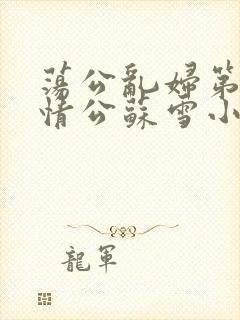 蕩公亂婦第
情公蘇雪小
龍軍